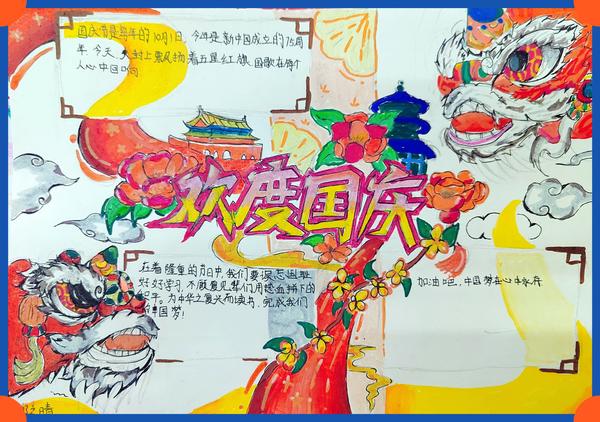 国庆节是每年的10月1日,今年是新中国成立的75周
年,今天,大
上飘扬着五星红旗,国歌在每个
人心中
欢度国庆
在着隆重的节日中,我们要
好好学习,不
们用
血拼下的
和平。为中华之复兴而读书,完成我们
中国梦!
加油吧,中国梦在心中永存
晴